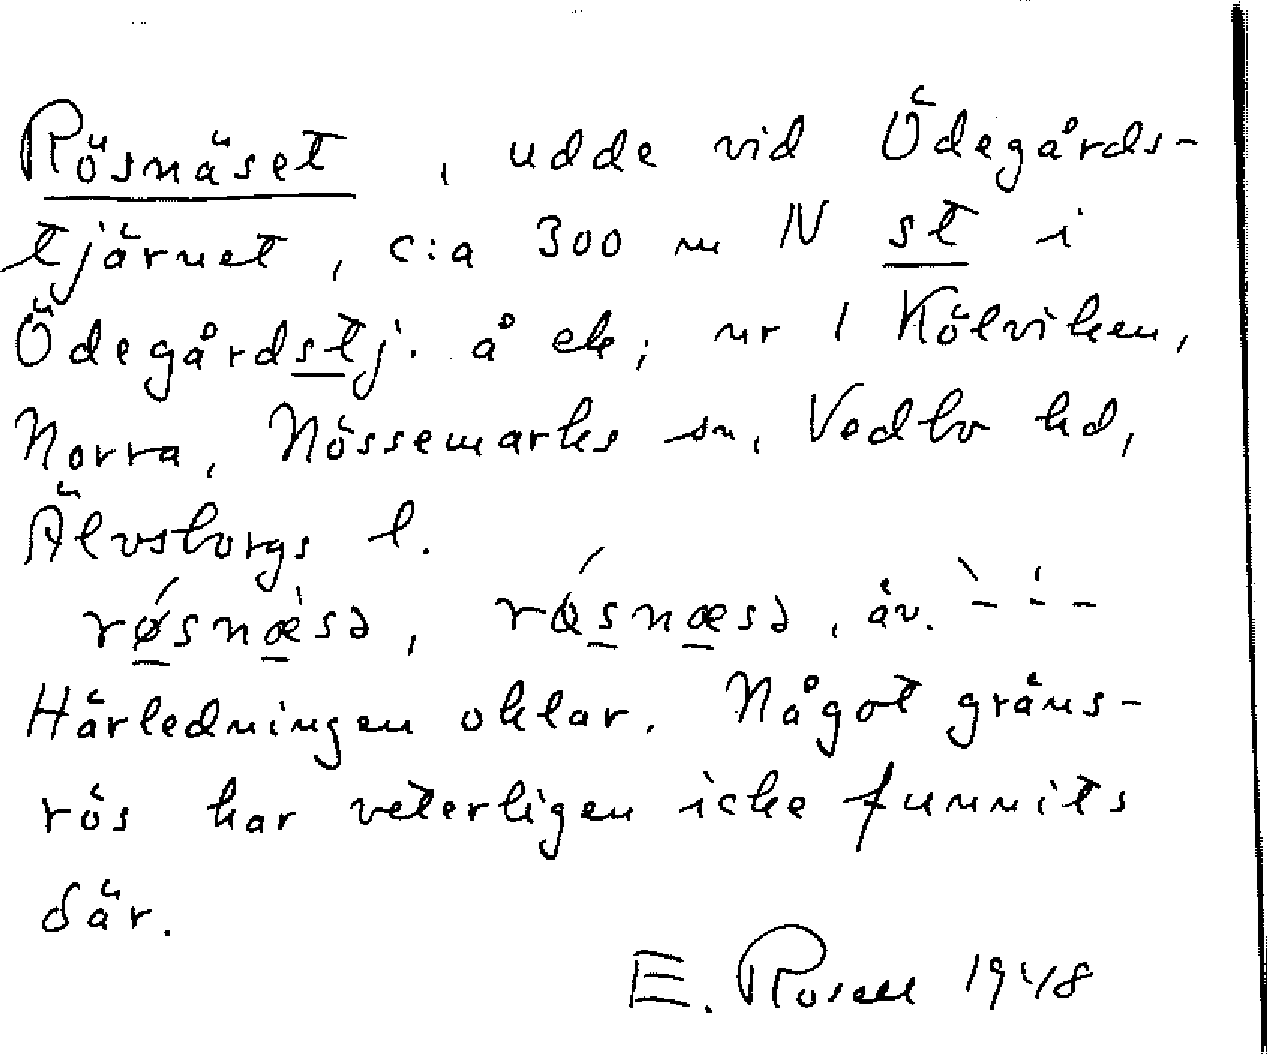 Rösnäset, udde vid Ödegårds-
tjärnet, c:a 300 m N st i
Ödegårdstj. å ek; nr 1 Kölviken,
Norra, Nössemarks sn, Vedbo hd,
Älvsborgs l.
røsnæsə, røsnæsə, äv.
Härledningen oklar. Något gräns-
rös har veterligen icke funnits
där.
E. Rosell 1948